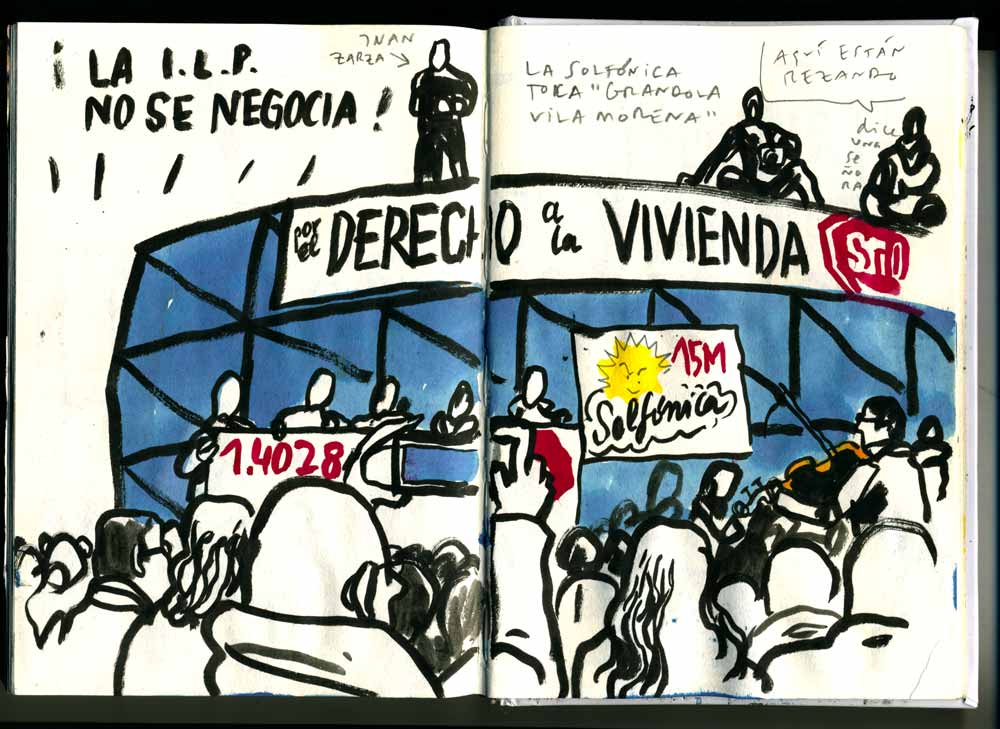 ¡ LA I.L.P.
NO SE NEGOCIA !
JUAN
ZARZA
LA SOLFÓNICA
TOCA "GRANDOLA
VILA MORENA"
AQUÍ ESTÁN
REZANDO
dice
UNA
SE
ÑO
RA
POR el DERECHO a la VIVIENDA
STOP
1.4028
15M
Solfónica